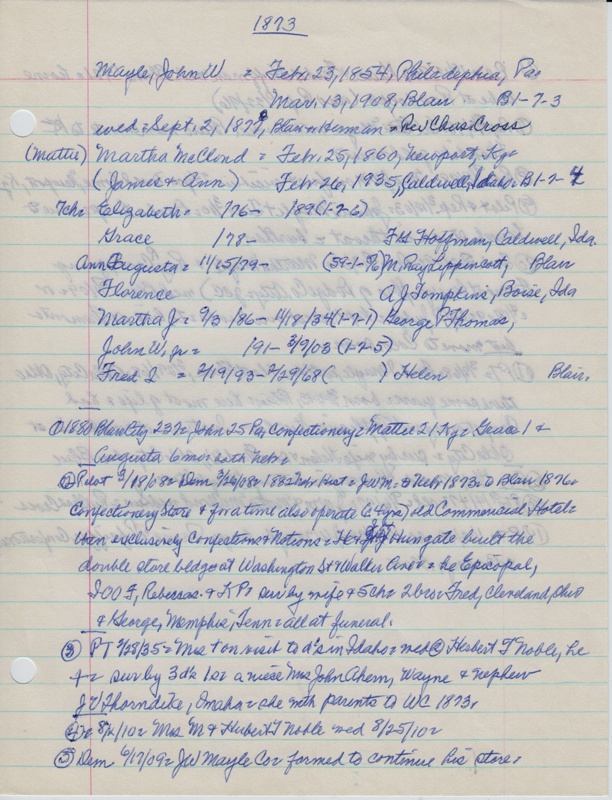 1873
Mayle, John W. = Feb. 23, 1854, Philadelphia, Pa
Mar. 13, 1908, Blair B1-7-3
wed = Sept. 2, 1877, Blair = Herman = Rev Chas Cross
(Mattie) Martha McCloud = Feb. 25, 1860, Newport, Ky =
(James & Ann) Feb 26, 1935, Caldwell, Idaho = B1-7-4
7ch = Elizabeth = /76 - /89 (1-7-6)
Grace /78 - F H Hoffman, Caldwell, Ida.
Ann Augusta = 11/25/79 - (59-1-76) M. Ray Lippincott, Blair
Florence A J Tompkins, Boise, Ida
Martha J = 9/3/86 - 11/18/34 (1-7-1) George P Thomas,
John W. jr = 191 - 3/9/08 (1-7-5)
Fred I = 2/19/93 - 2/29/68 ( ) Helen Blair.
① 1880 Blair City = 237 = John 25 Pa Confectionery = Mattie 21 Ky = Grace 1 &
Augusta 6 mos both Neb =
② Pilot 3/18/08 = Dem 3/26/08 = 1882 Neb Hist = J W M. = to Neb 1873 = to Blair 1876 =
Confectionery Store & for a time also operate old Commercial Hotel =
then exclusively Confections & Notions = Hungate built the
double store bldgs at Washington St & Walker Ave = he Episcopal,
IOOF, Rebeccas & K P = sur by wife & 5 ch = 2 bro = Fred, Cleveland, Ohio
& George, Memphis, Tenn = all at funeral.
③ PT 2/28/35 = Mrs † on visit to d's in Idaho = wed ② Hebert T Noble, he
† = sur by 3 d's 1 s = a niece Mrs John Ahern, Wayne & nephew
J W Thorndike, Omaha = she with parents to WC 1873.
④ Mrs M & Hubert T Noble wed 8/25/10 =
⑤ Dem 6/17/09 = J W Mayle Co = formed to continue his store.